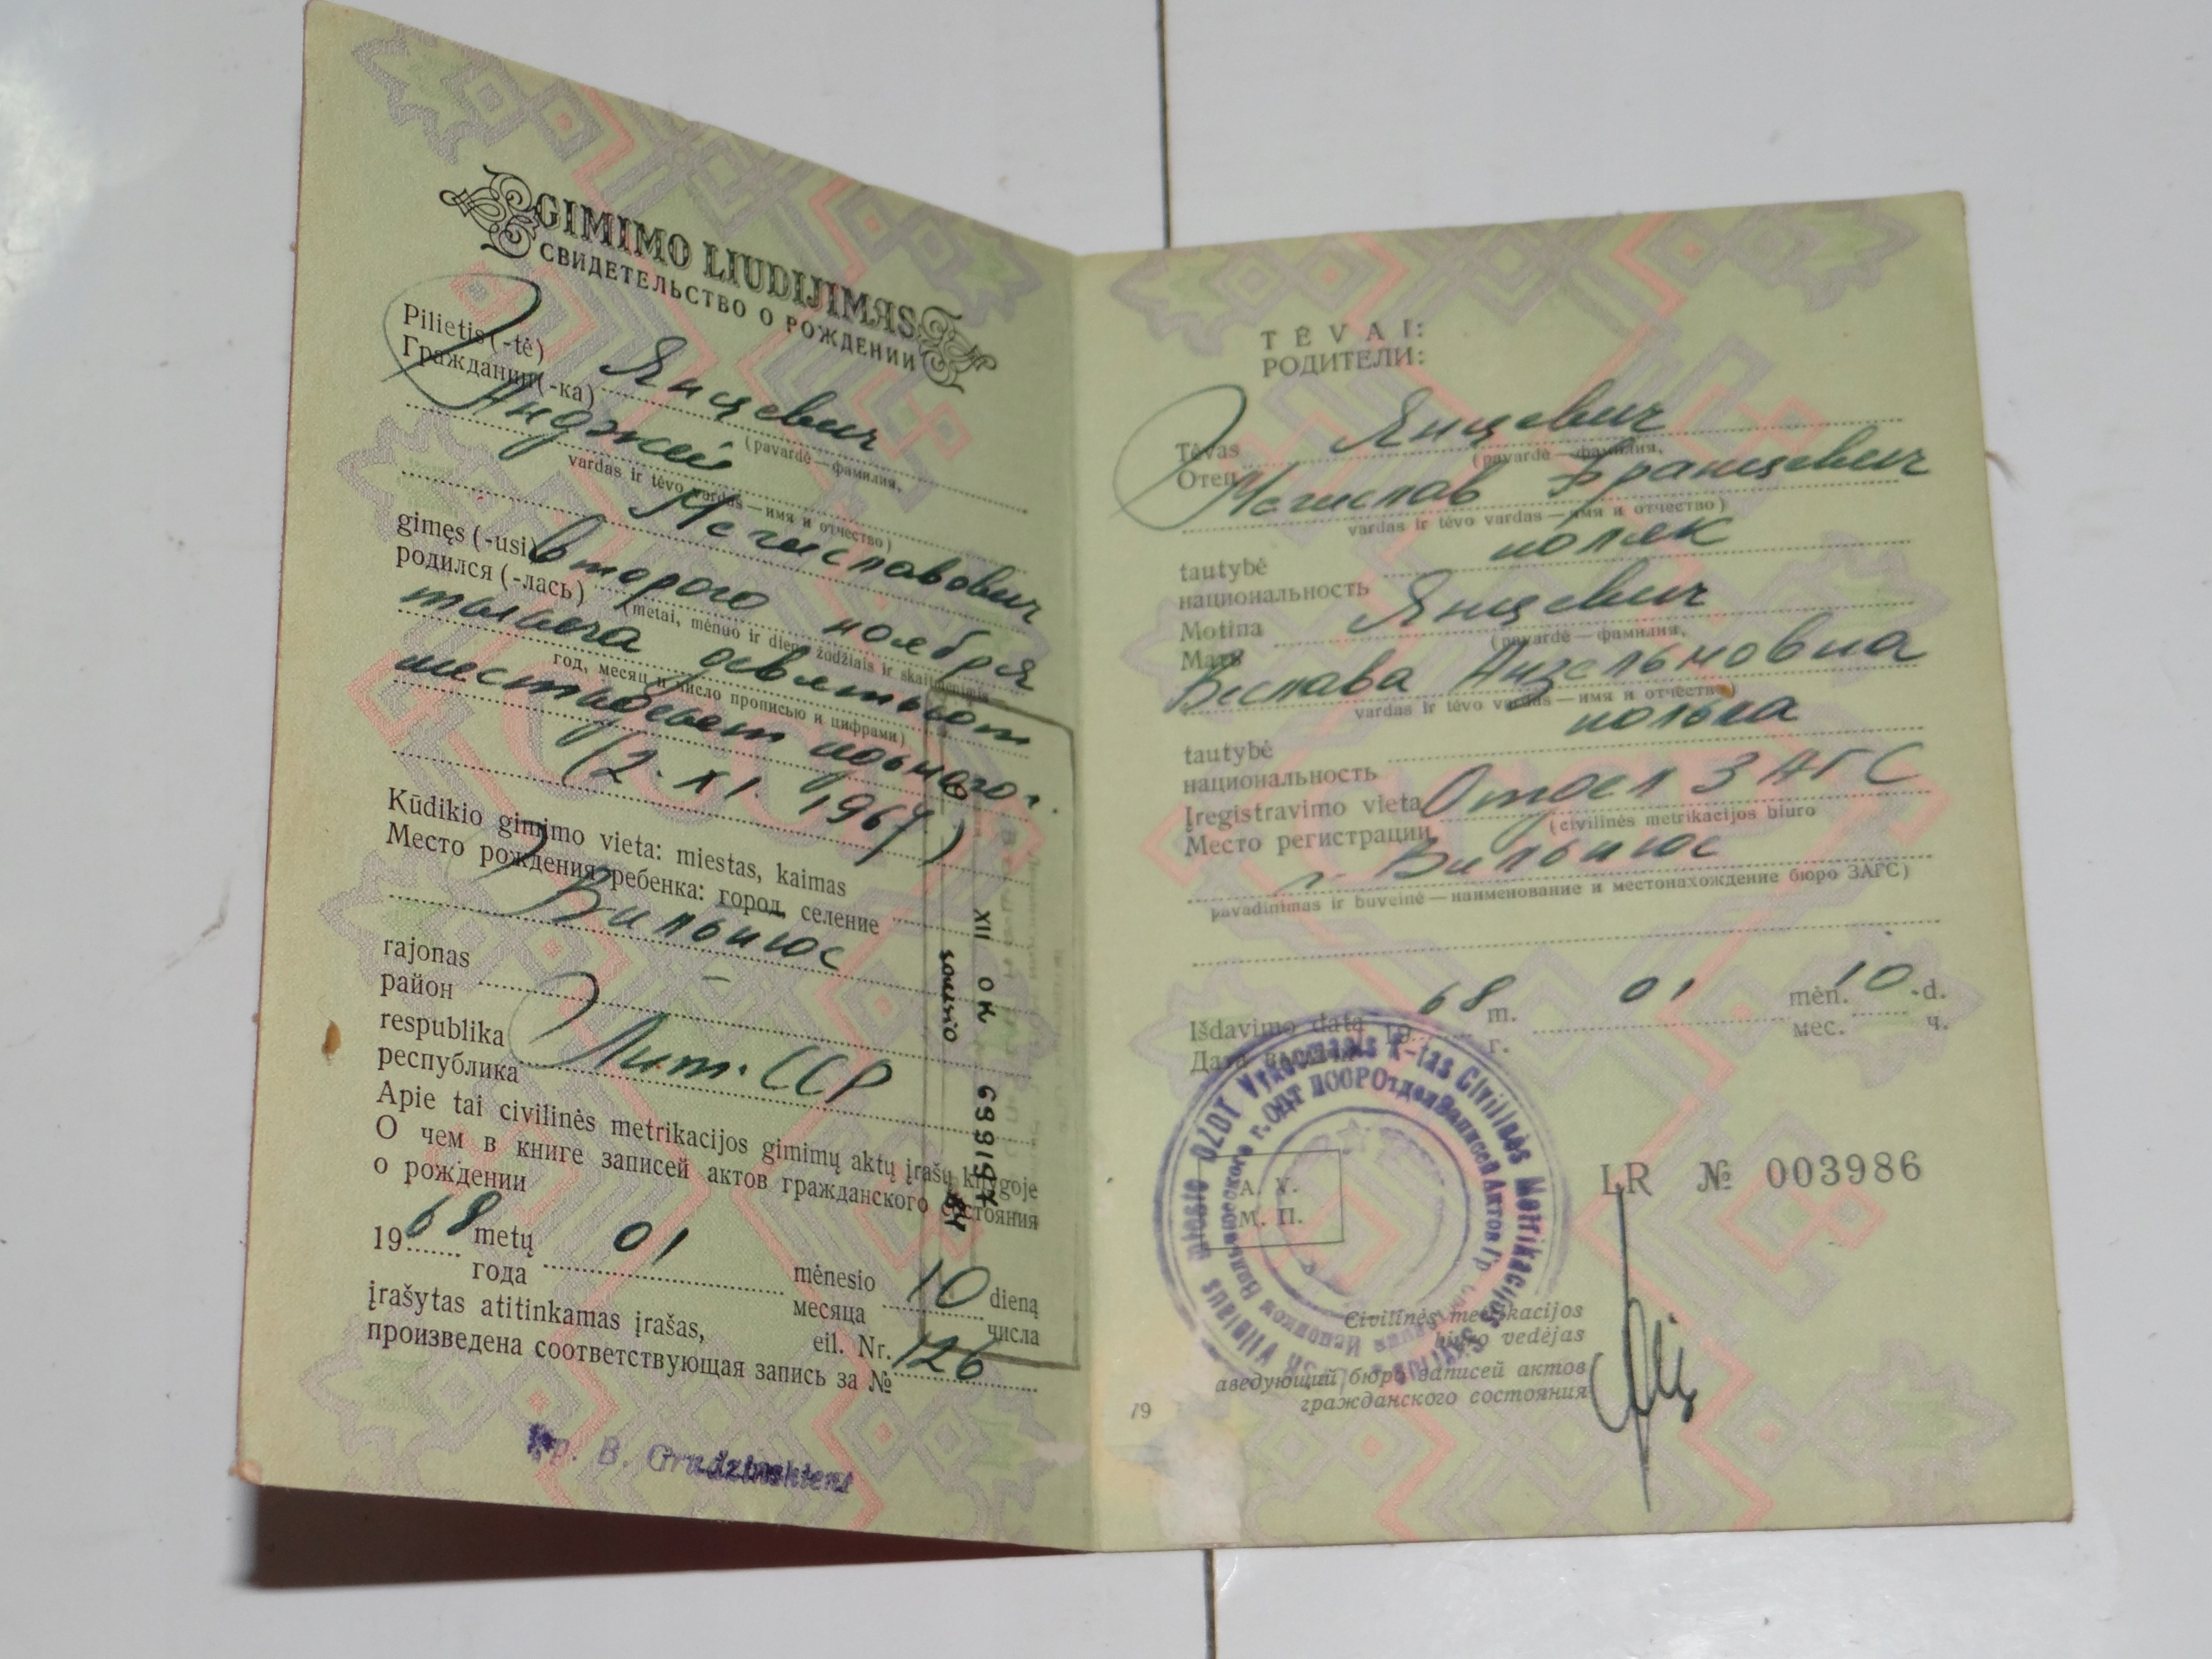 GIMIMO LIUDIJIMAS
СВИДЕТЕЛЬСТВО О РОЖДЕНИИ
Pilietis (-tė)
Гражданин (-ка) Янцевич
(pavardė — фамилия,
Анджей
vardas ir tėvo vardas — имя и отчество)
Мечиславович
gimęs (-usi)
родился (-лась) второго ноября
(metai, mėnuo ir diena žodžiais ir skaitmenimis
тысяча девятьсот
год, месяц и число прописью и цифрами)
шестьдесят
(2. XI. 1967)
Kūdikio gimimo vieta: miestas, kaimas
Место рождения ребенка: город, селение
Вильнюс
rajonas
район –
respublika
республика Лит. ССР
Apie tai civilinės metrikacijos gimimų aktų įrašų knygoje
О чем в книге записей актов гражданского состояния
о рождении
1968 metų 01 mėnesio 10 dieną
года месяца числа
įrašytas atitinkamas įrašas, eil. Nr.
произведена соответствующая запись за № 126
XII ОК 689197
B. Grudzinskienė
TĖVAI:
РОДИТЕЛИ:
Tėvas
Отец Янцевич
(pavardė — фамилия,
Мечислав Францевич
vardas ir tėvo vardas — имя и отчество)
tautybė поляк
национальность
Motina Янцевич
Мать (pavardė — фамилия,
Веслава Анзельмовна
vardas ir tėvo vardas — имя и отчество)
tautybė полька
национальность
Įregistravimo vieta Отдел ЗАГС
Место регистрации (civilinės metrikacijos biuro
г. Вильнюс
pavadinimas ir buveinė — наименование и местонахождение бюро ЗАГС)
Išdavimo data 1968 m. 01 mėn. 10 -d.
Дата г. мес. ч.
LR № 003986
A. V.
М. П.
Vilniaus miesto DŽDT Vykdomasis K-tas Civilinės Metrikacijos
Civilinės metrikacijos
biuro vedėjas
аведующий бюро записей актов
гражданского состояния
79